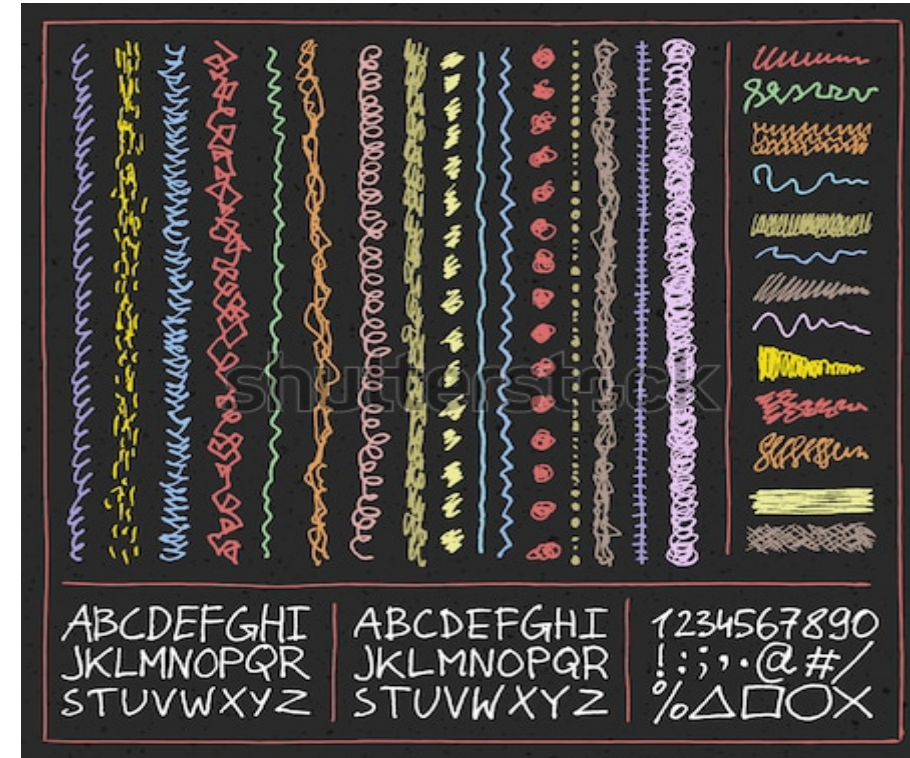 shutterstock
ABCDEFGHI
JKLMNOPQR
STUVWXYZ
ABCDEFGHI
JKLMNOPQR
STUVWXYZ
1234567890
!:;,.@#/
%△□○X